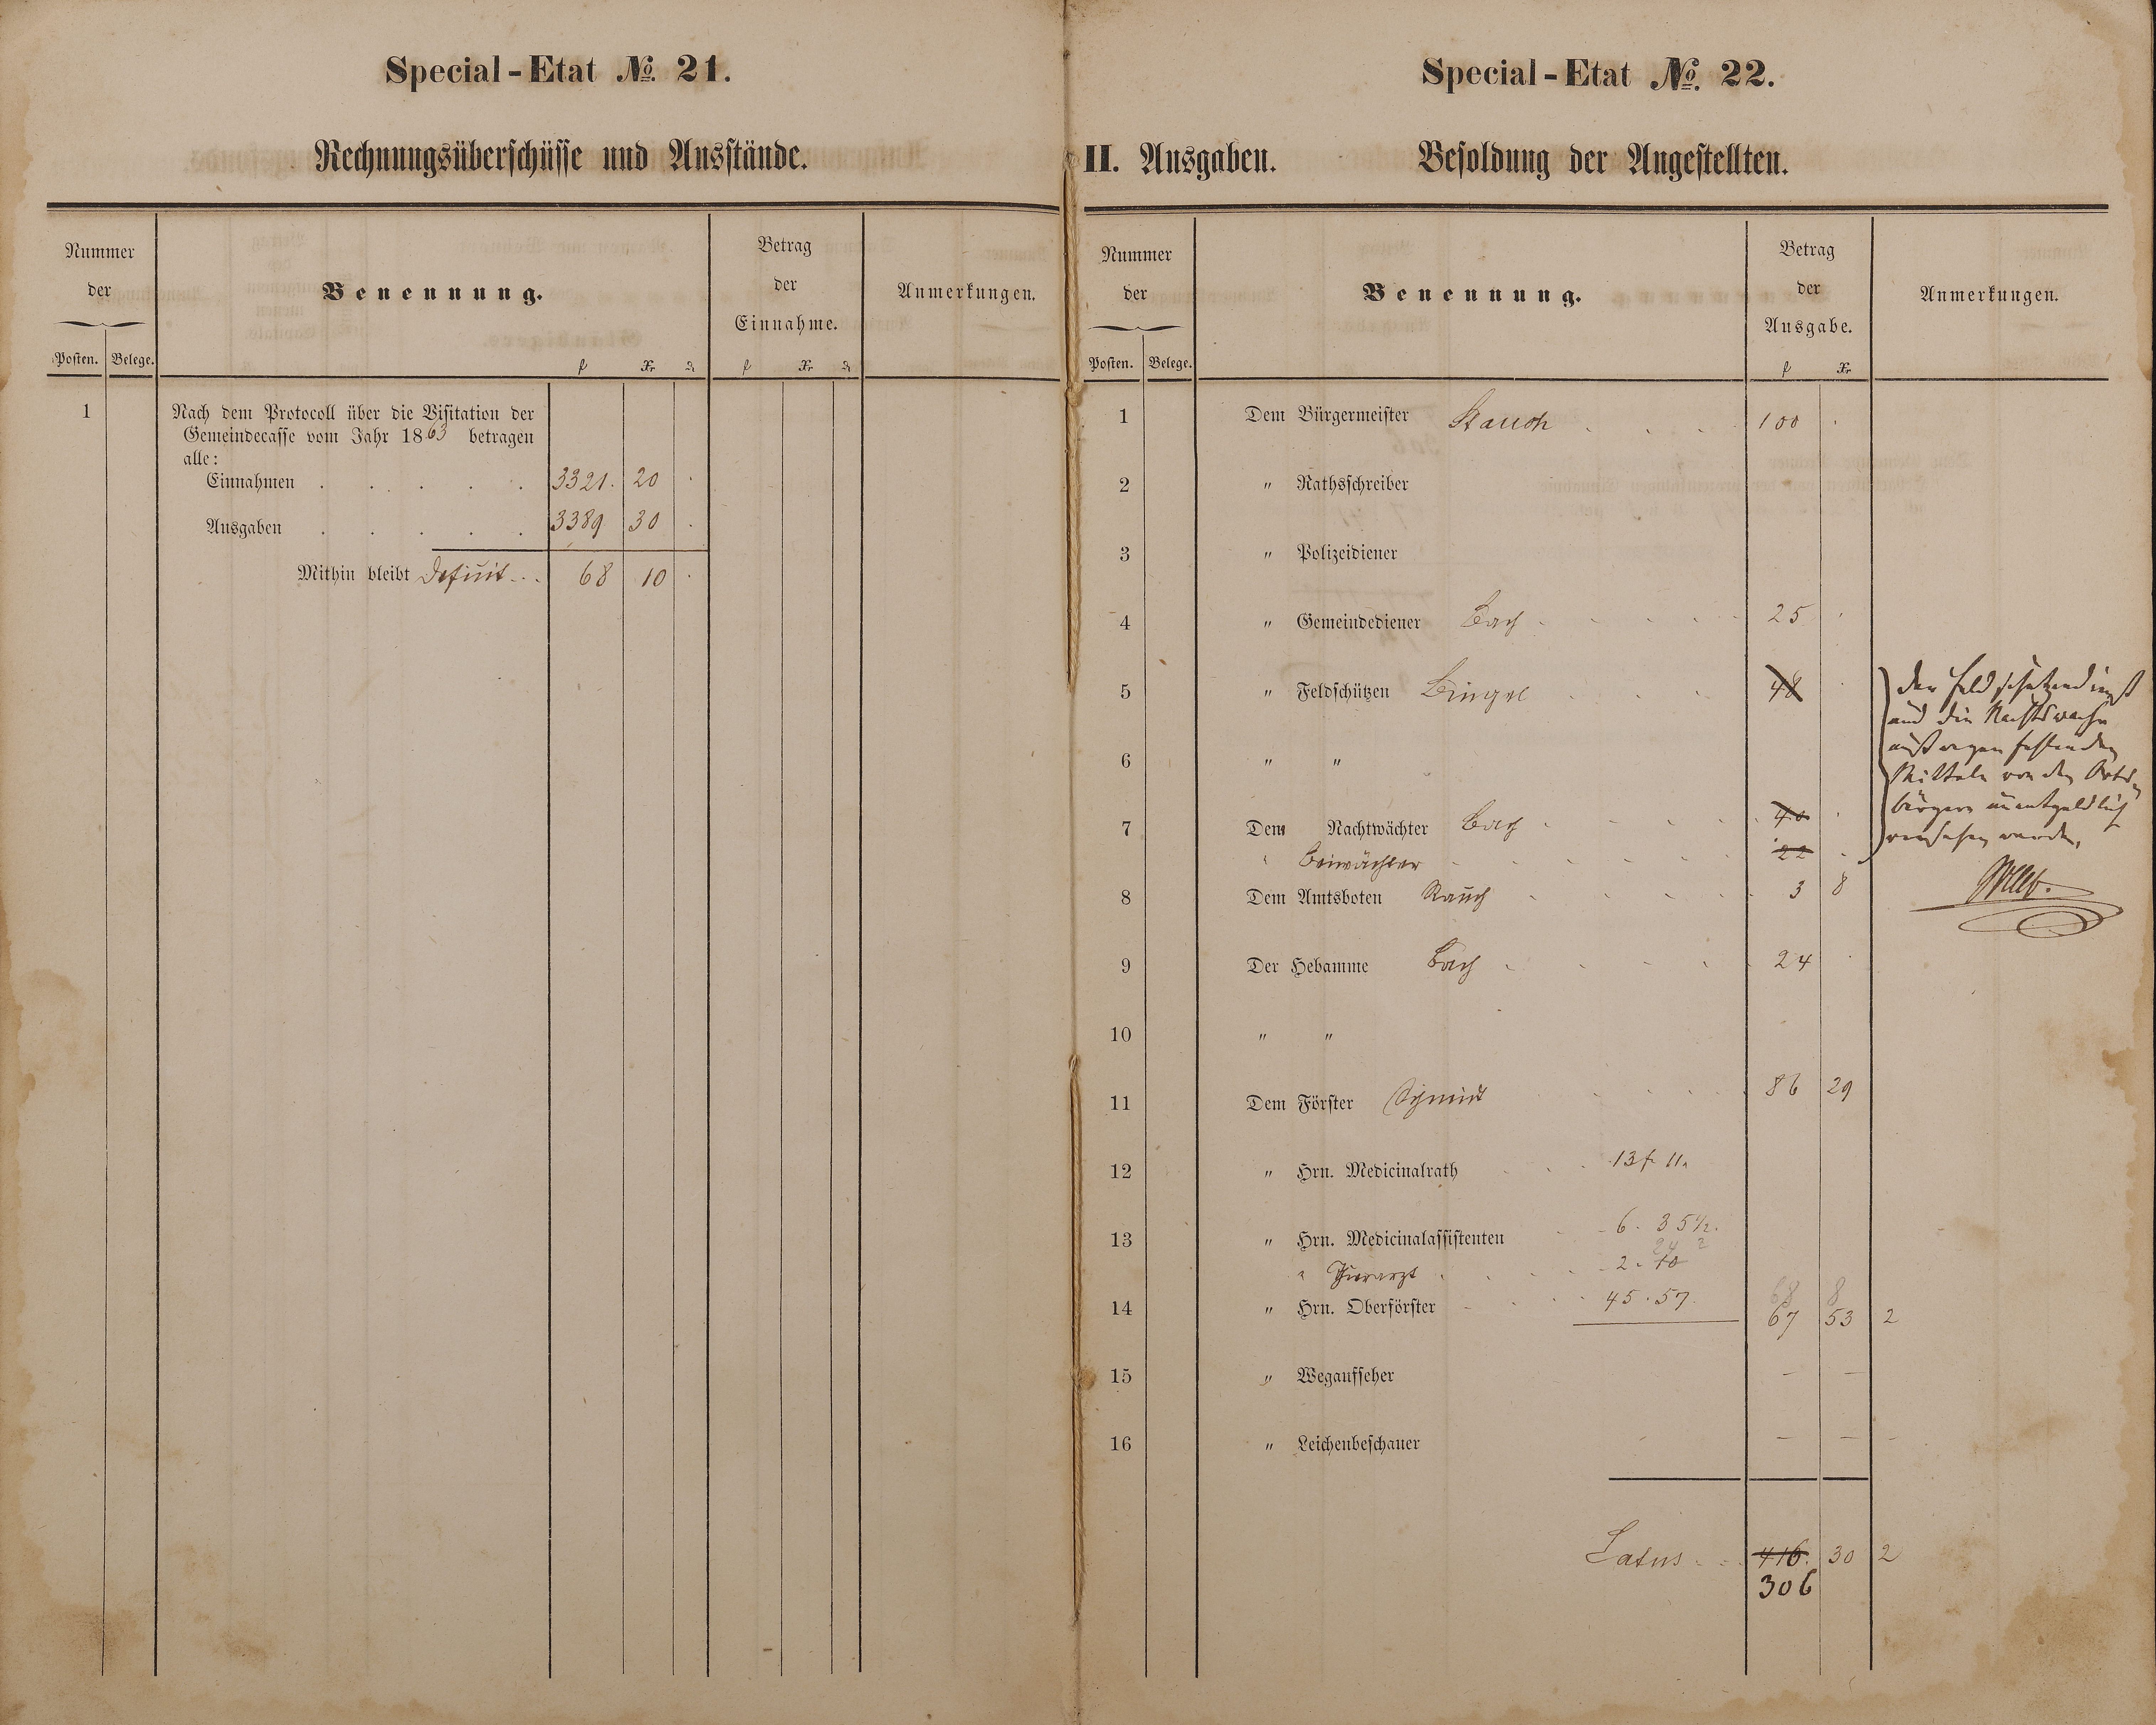 Special-Etat No. 21.
Rechnungsüberschüsse und Ausstände.
Nummer der
Posten. Belege.
Benennung.
Betrag der Einnahme.
Anmerkungen.
f Xr ₰ f Xr ₰
1 Nach dem Protocoll über die Visitation der
Gemeindecasse vom Jahr 1863 betragen
alle:
Einnahmen . . . . . 3321. 20 .
Ausgaben . . . . . 3389 30 .
Mithin bleibt Defizit . . . 68 10 .
Special-Etat No. 22.
II. Ausgaben. Besoldung der Angestellten.
Nummer der
Posten. Belege.
Benennung.
Betrag der Ausgabe.
Anmerkungen.
f Xr
1 Dem Bürgermeister Stauch . . . 100 .
2 " Rathsschreiber
3 " Polizeidiener
4 " Gemeindediener Bach . . . . . 25 .
5 " Feldschützen Bingel . . . 48 .
6 " "
7 Dem Nachtwächter Bach . . . . . 40 .
" Beiwächter . . . . . . 22 .
8 Dem Amtsboten Rauch . . . . . 3 8
9 Der Hebamme Bach . . . . . 24 .
10 " "
11 Dem Förster Schmidt . . . . 86 29
12 " Hrn. Medicinalrath . . . 13 f 11.
13 " Hrn. Medicinalassistenten . . 6. 35 1/2.
24 2
" Thierarzt . . . . 2. 10
14 " Hrn. Oberförster . . . 45. 57.
68 8
67 53 2
15 " Wegaufseher — —
16 " Leichenbeschauer — — -
Latus . . . 416. 30 2
306
Der Feldschützendienst
und die Nachtwache
muß wegen fehlenden
Mitteln von den Orts-
bürgern unentgeldlich
versehen werden.